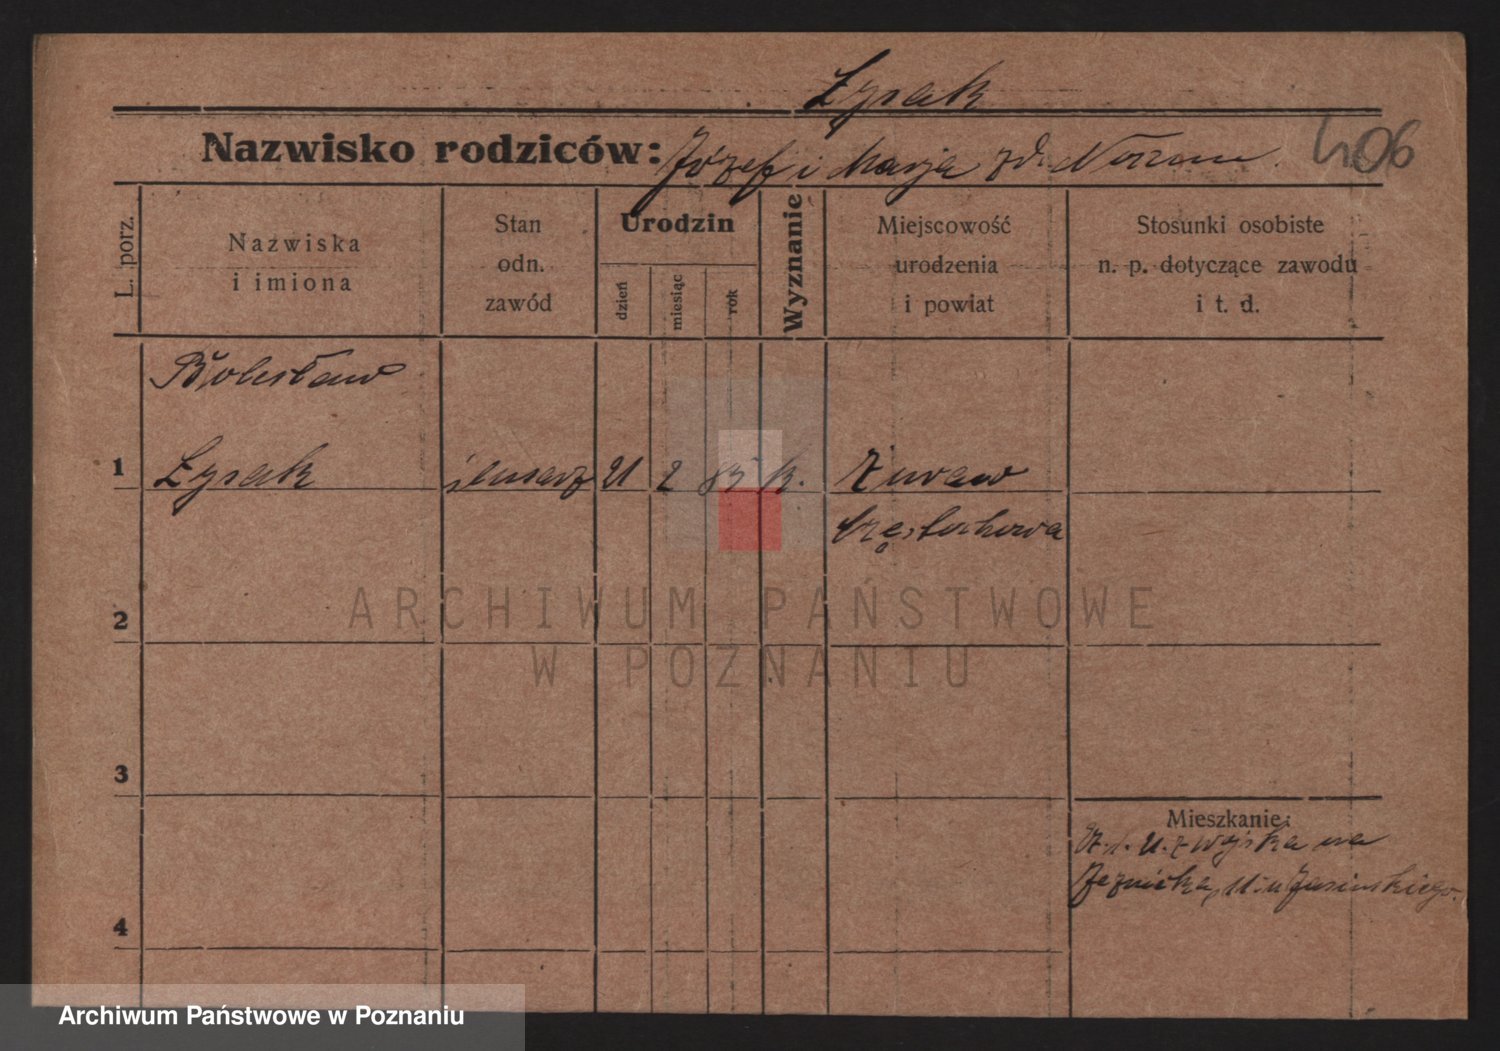 Łysak
Nazwisko rodziców: Józef i Marja zd.
406
L. porz.
Nazwiska
i imiona
Stan
odn.
zawód
Urodzin
dzień
miesiąc
rok
Wyznanie
Miejscowość
urodzenia
i powiat
Stosunki osobiste
n. p. dotyczące zawodu
i t. d.
Bolesław
1 Łysak 21 2 85 k. Żuraw
Częstochowa
2
3
Mieszkanie:
z wojska na
Jeżnicka, Jasińskiego.
4
ARCHIWUM PAŃSTWOWE
W POZNANIU
Archiwum Państwowe w Poznaniu